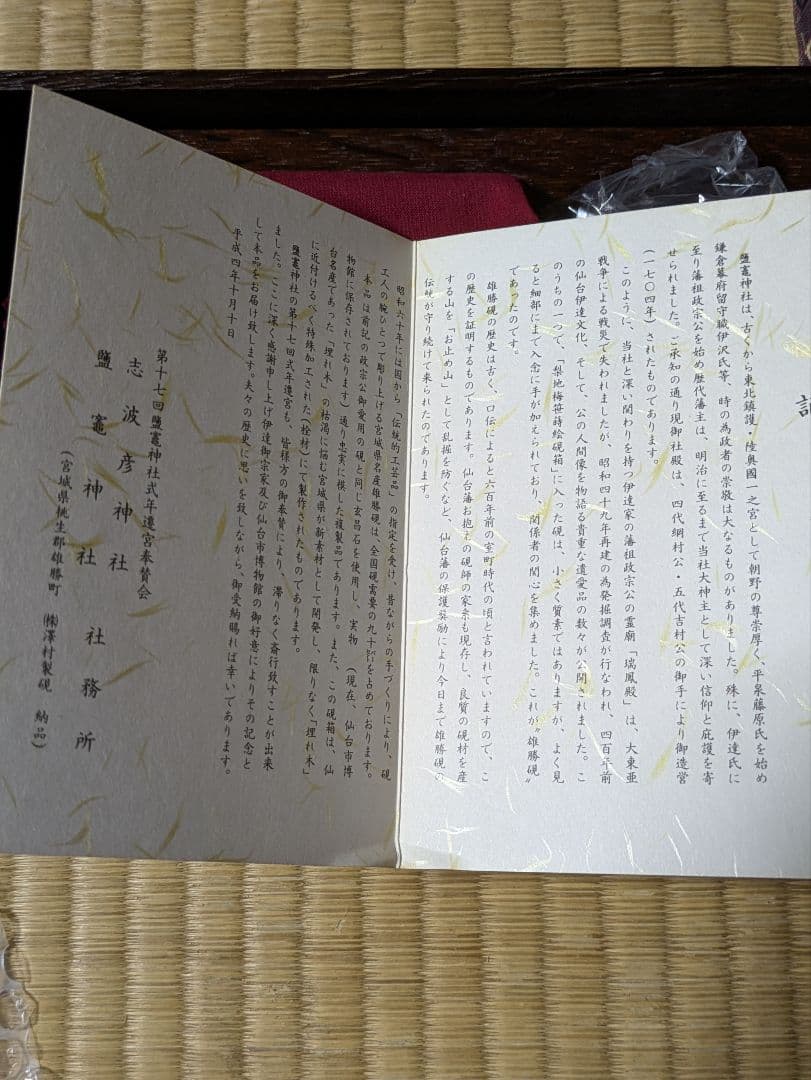 鹽竈神社は、古くから東北鎮護・陸奥國一之宮として朝野の尊崇厚く、平泉藤原氏を始め
鎌倉幕府留守職伊沢氏等、時の為政者の崇敬は大なるものがありました。殊に、伊達氏に
至り藩祖政宗公を始め歴代藩主は、明治に至るまで当社大神主として深い信仰と庇護を寄
せられました。ご承知の通り現御社殿は、四代綱村公・五代吉村公の御手により御造営
(一七〇四年)されたものであります。
このように、当社と深い関わりを持つ伊達家の藩祖政宗公の霊廟「瑞鳳殿」は、大東亜
戦争による戦災で失われましたが、昭和四十九年再建の為発掘調査が行なわれ、四百年前
の仙台伊達文化、そして、公の人間像を物語る貴重な遺愛品の数々が公開されました。こ
のうちの一つで、「梨地梅笹蒔絵硯箱」に入った硯は、小さく質素ではありますが、よく見
ると細部にまで入念に手が加えられており、関係者の関心を集めました。これが〝雄勝硯〟
であったのです。
雄勝硯の歴史は古く、口伝によると六百年前の室町時代の頃と言われていますので、こ
の歴史を証明するものであります。仙台藩お抱えの硯師の家系も現存し、良質の硯材を産
する山を「お止め山」として乱掘を防ぐなど、仙台藩の保護奨励により今日まで雄勝硯の
伝統が守り続けて来られたのであります。
昭和六十年には国から「伝統的工芸品」の指定を受け、昔ながらの手づくりにより、硯
工人の腕ひとつで彫り上げる宮城県名産雄勝硯は、全国硯需要の九十%を占めております。
本品は前記の政宗公御愛用の硯と同じ玄昌石を使用し、実物(現在、仙台市博
物館に保存されております)通り忠実に模した複製品であります。また、この硯箱は、仙
台名産であった「埋れ木」の枯渇に悩む宮城県が新素材として開発し、限りなく「埋れ木」
に近付けるべく特殊加工された(栓材)にて製作されたものであります。
鹽竈神社の第十七回式年遷宮も、皆様方の御奉賛により、滞りなく斎行致すことが出来
ました。ここに深く感謝申し上げ伊達御宗家及び仙台市博物館の御好意によりその記念と
して本品をお届け致します。夫々の歴史に思いを致しながら、御愛納賜れば幸いであります。
平成四年十月十日
第十七回鹽竈神社式年遷宮奉賛会
志波彦神社
鹽竈神社 社務所
(宮城県桃生郡雄勝町 ㈱澤村製硯 納品)